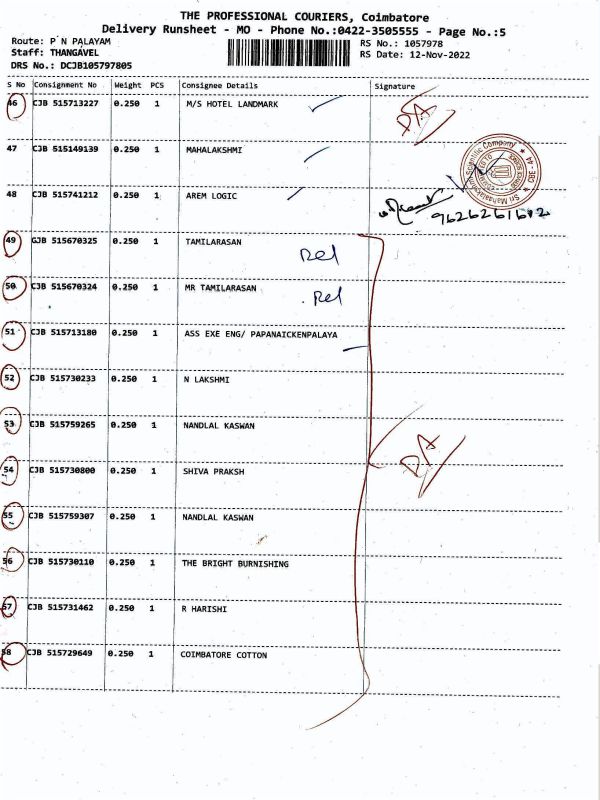 THE PROFESSIONAL COURIERS, Coimbatore
Delivery Runsheet - MO - Phone No.:0422-3505555 - Page No.:5
Route: P N PALAYAM
Staff: THANGAVEL
DRS No.: DCJB105797805
RS No.: 1057978
RS Date: 12-Nov-2022
S No Consignment No Weight PCS Consignee Details Signature
46 CJB 515713227 0.250 1 M/S HOTEL LANDMARK DA
47 CJB 515149139 0.250 1 MAHALAKSHMI
48 CJB 515741212 0.250 1 AREM LOGIC
49 CJB 515670325 0.250 1 TAMILARASAN Rel
50 CJB 515670324 0.250 1 MR TAMILARASAN Rel
51 CJB 515713180 0.250 1 ASS EXE ENG/ PAPANAICKENPALAYA
52 CJB 515730233 0.250 1 N LAKSHMI
53 CJB 515759265 0.250 1 NANDLAL KASWAN
DA
54 CJB 515730800 0.250 1 SHIVA PRAKSH
55 CJB 515759307 0.250 1 NANDLAL KASWAN
56 CJB 515730110 0.250 1 THE BRIGHT BURNISHING
57 CJB 515731462 0.250 1 R HARISHI
58 CJB 515729649 0.250 1 COIMBATORE COTTON